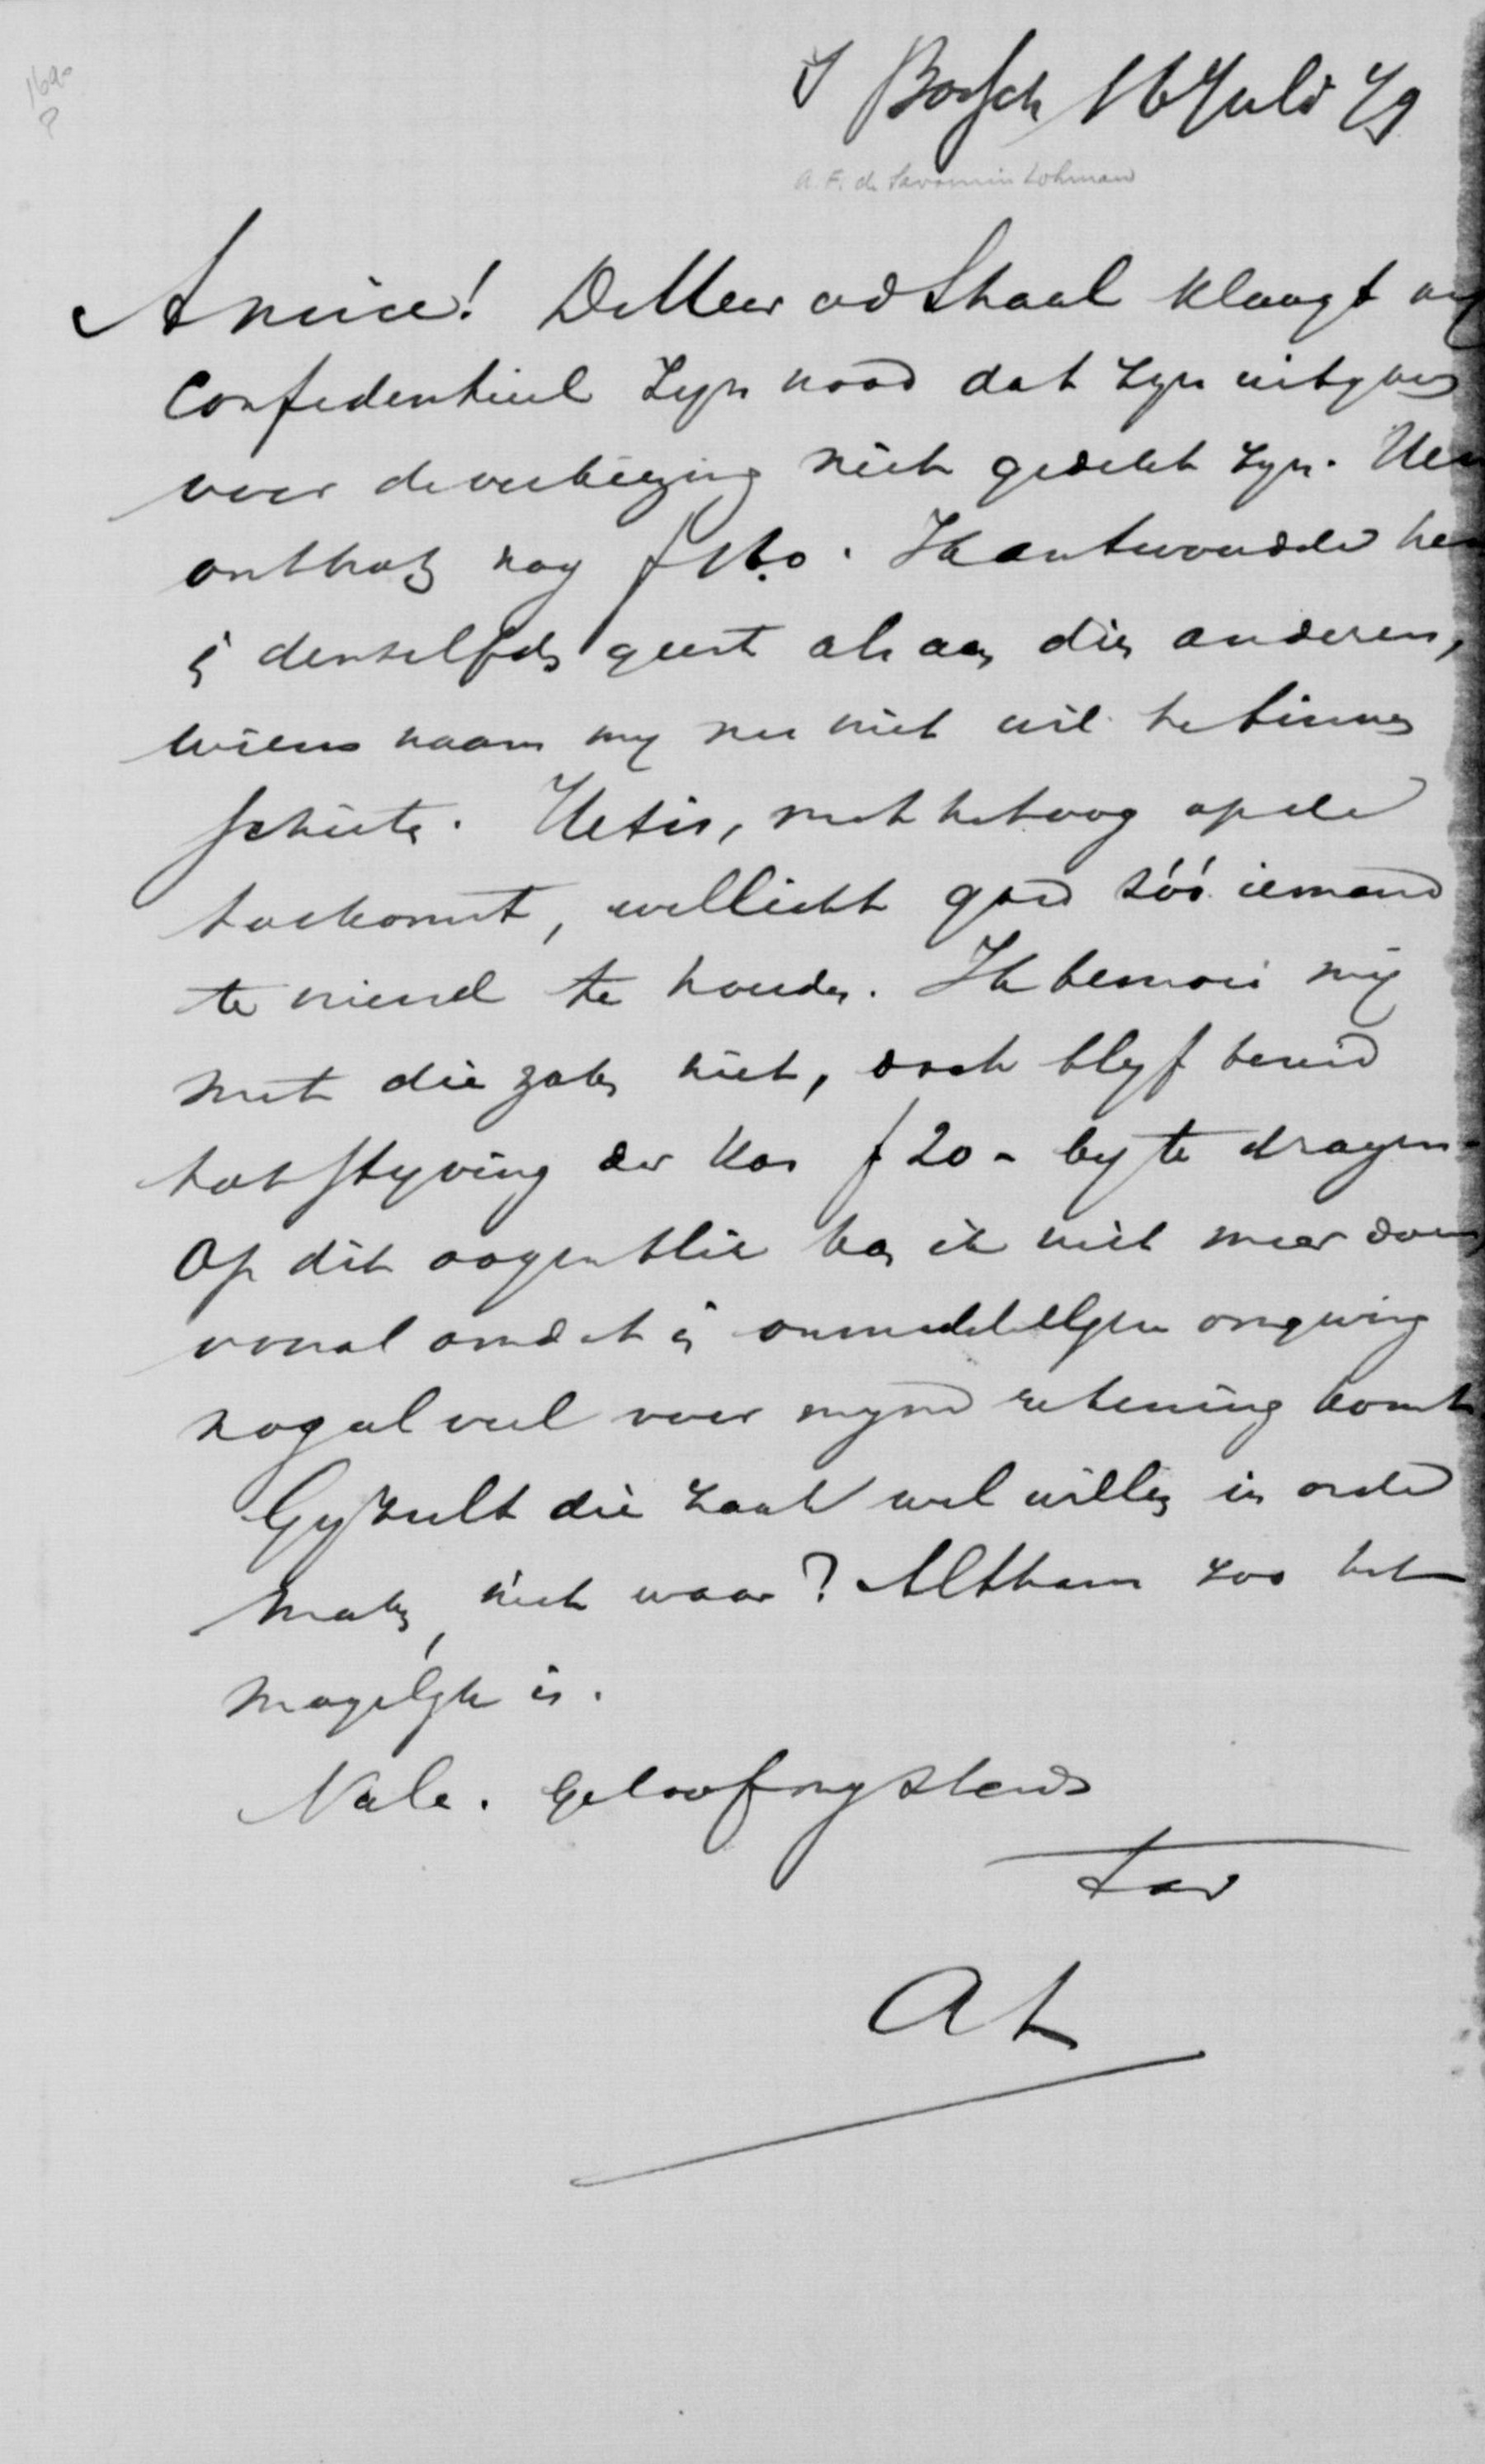 's Bosch 16 Juli 79
A. F. de Savornin Lohman
Amice! De Heer vd Staal klaagt my
Confidentieel zyn nood dat zyn uitgaven
voor de verkiezing niet gedekt zyn. Hem
ontbrak nog Ik antwoordde hem
in denzelfden geest als aan dien anderen,
wiens naam my nu niet wil te binnen
schieten. Het is, met het oog op de
toekomst, wellicht goed zóó iemand
te vriend te houden. Ik bemoei mij
met die zaken niet, doch blyf bereid
tot styving der kas f 20 - by te dragen.
Op dit oogenblik kan ik niet meer doen,
vooral omdat in onmiddellyke omgeving
nogal veel voor myne rekening komt
Gy zult die zaak wel willen in orde
maken, niet waar? Althans zoo het
mogelyk is.
Vale. Geloof my steeds
t.av
AL